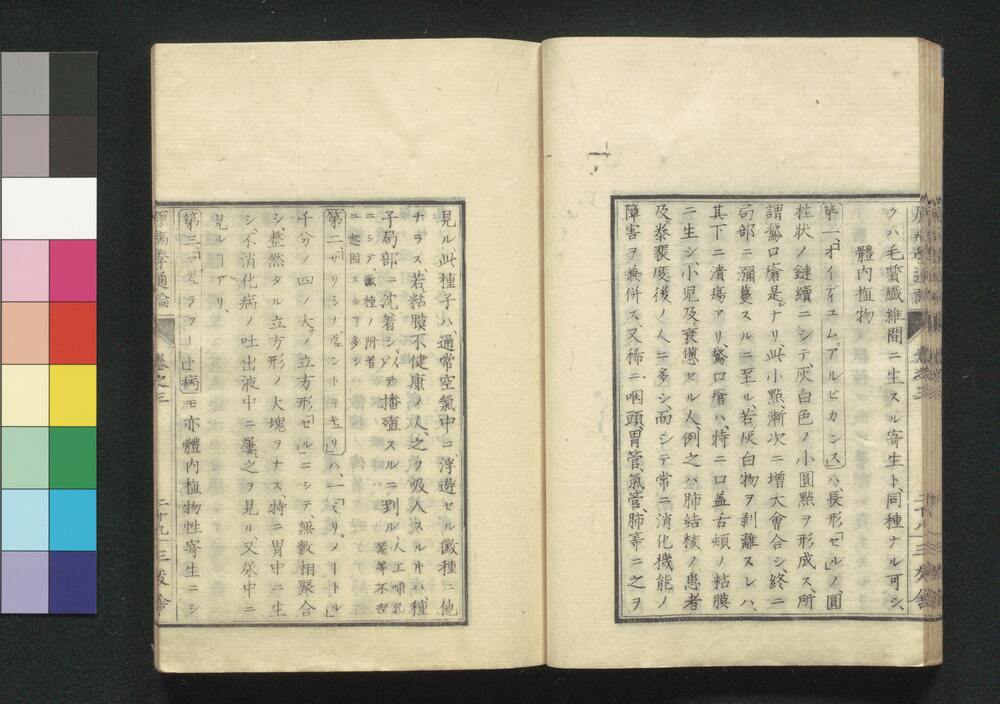 クハ毛蟄纎維間ニ生スル寄生ト、同種ナル可シ、
體內植物
第一、「オイディユム、アルビカンス」ハ、長形「セル」ノ、圓
柱狀ノ鏈續ニシテ、灰白色ノ小圓點ヲ形成ス、所
謂鵞口瘡是ナリ、此小點漸次ニ增大會合シ、終ニ
局部ニ瀰蔓スルニ至ル、若灰白物ヲ剥離スレハ、
其下ニ潰瘍アリ、鵞口瘡ハ、特ニ口蓋舌頰ノ粘膜
ニ生シ、小兒及衰憊セル人、例之ハ肺結核ノ患者
及蓐褥後ノ人ニ多シ、而シテ常ニ消化機能ノ
障害ヲ兼併ス、又稀ニ、咽頭、胃管、氣管、肺等ニ之ヲ
卷之三
二十八
三友舍
見ル、此種子ハ、通常空氣中ニ浮遊セル黴種ニ他
ナラス、若粘膜不健康ノ人、之ヲ吸入スル片ハ、種
子局部ニ沈着シテ播殖スルニ到ル、人工哺乳
ニシテ黴種ノ附着
ニ起因スル丁多シ
第二、「サリシナ、ヴェントリキュリ」ハ、一「ミリメートル」
千分ノ四ノ大ノ立方形「セル」ニシテ、無數相聚合
シ、整然タル立方形ノ大塊ヲナス、特ニ胃中ニ生
シ、不消化病ノ吐出液中ニ屢之ヲ見ル、又尿中ニ
見ル丁アリ、
病モ亦體內植物性寄生ニシ
原病學通論
卷之三
二十九
三友舍